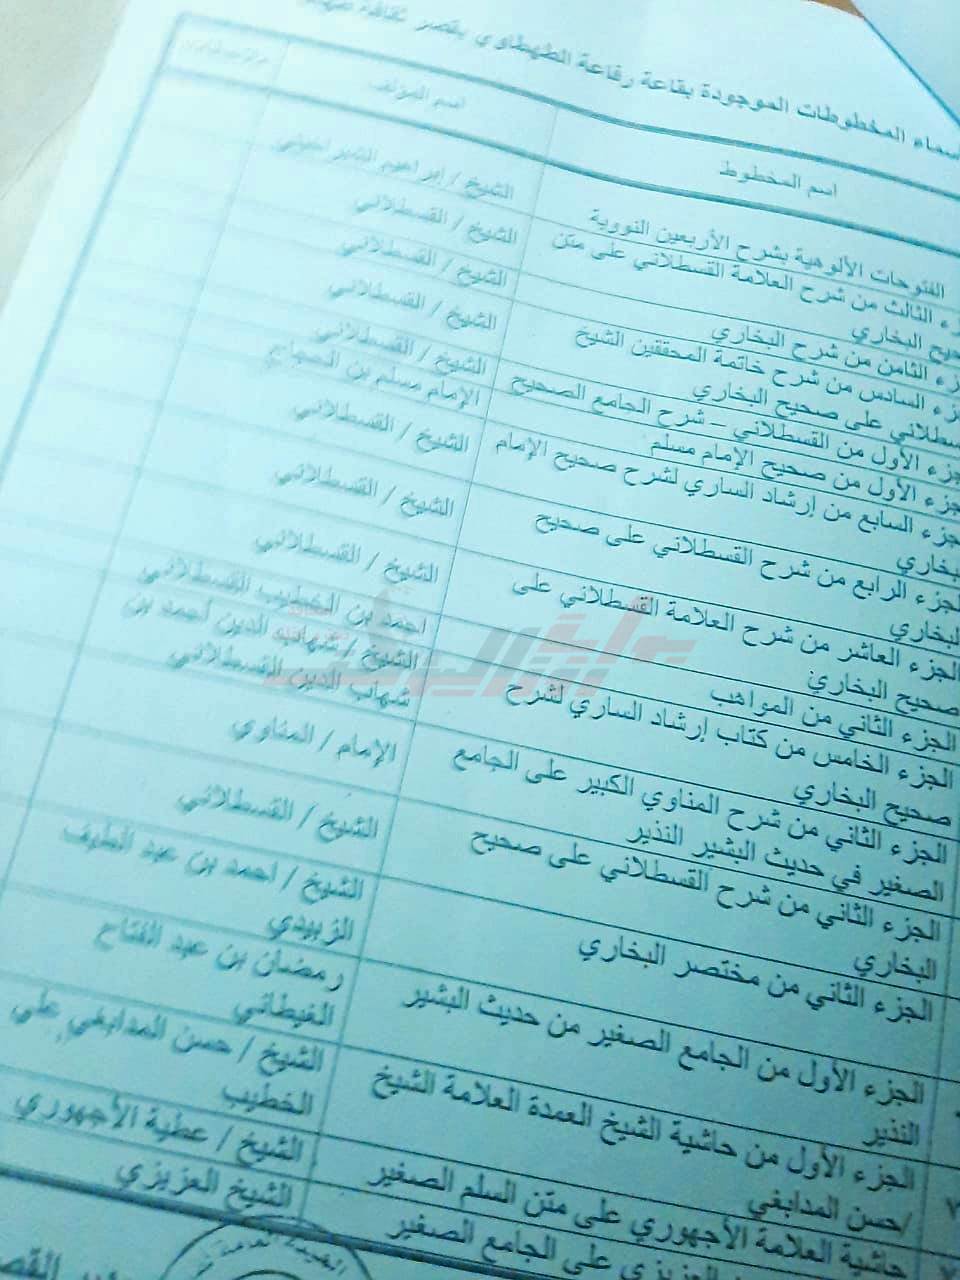 المخطوطات الموجودة بقاعة رفاعة الطهطاوي بقصر ثقافة
اسم المخطوط
اسم المؤلف
الفتوحات الألوهية بشرح الأربعين النووية
الشيخ / إبراهيم
الثالث من شرح العلامة القسطلاني على متن
البخاري
الشيخ / القسطلاني
الثامن من شرح البخاري
الشيخ / القسطلاني
السادس من شرح خاتمة المحققين الشيخ
على صحيح البخاري
الشيخ / القسطلاني
الأول من القسطلاني – شرح الجامع الصحيح
الشيخ / القسطلاني
الأول من صحيح الإمام مسلم
الإمام مسلم بن الحجاج
السابع من إرشاد الساري لشرح صحيح الإمام
البخاري
الشيخ / القسطلاني
الجزء الرابع من شرح القسطلاني على صحيح
البخاري
الشيخ / القسطلاني
الجزء العاشر من شرح العلامة القسطلاني على
صحيح البخاري
الشيخ / القسطلاني
الجزء الثاني من المواهب
احمد بن الخطيب القسطلاني
الجزء الخامس من كتاب إرشاد الساري لشرح
صحيح البخاري
الشيخ / شهاب الدين أحمد بن
شهاب الدين القسطلاني
الجزء الثاني من شرح المناوي الكبير على الجامع
الصغير في حديث البشير النذير
الإمام / المناوي
الجزء الثاني من شرح القسطلاني على صحيح
البخاري
الشيخ / القسطلاني
الجزء الثاني من مختصر البخاري
الشيخ / احمد بن عبد اللطيف
الزبيدي
الجزء الأول من الجامع الصغير من حديث البشير
النذير
رمضان بن عبد الفتاح
الغيطاني
الجزء الأول من حاشية الشيخ العمدة العلامة الشيخ
/حسن المدابغي
الشيخ / حسن المدابغي على
الخطيب
حاشية العلامة الأجهوري على متن السلم الصغير
الشيخ / عطية الأجهوري
العزيزي على الجامع الصغير
الشيخ العزيزي